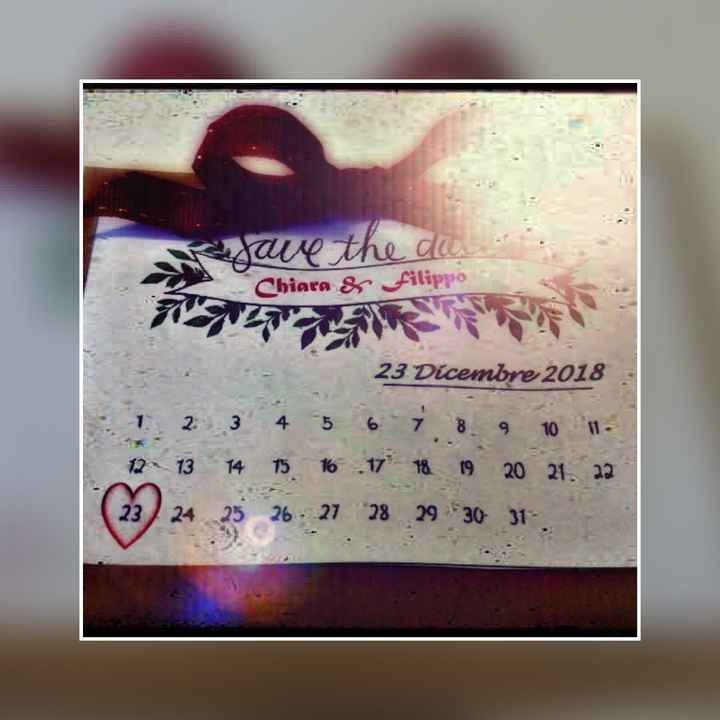 Save the date
Chiara & Filippo
23 Dicembre 2018
1 2 3 4 5 6 7 8 9 10 11
12 13 14 15 16 17 18 19 20 21 22
23 24 25 26 27 28 29 30 31